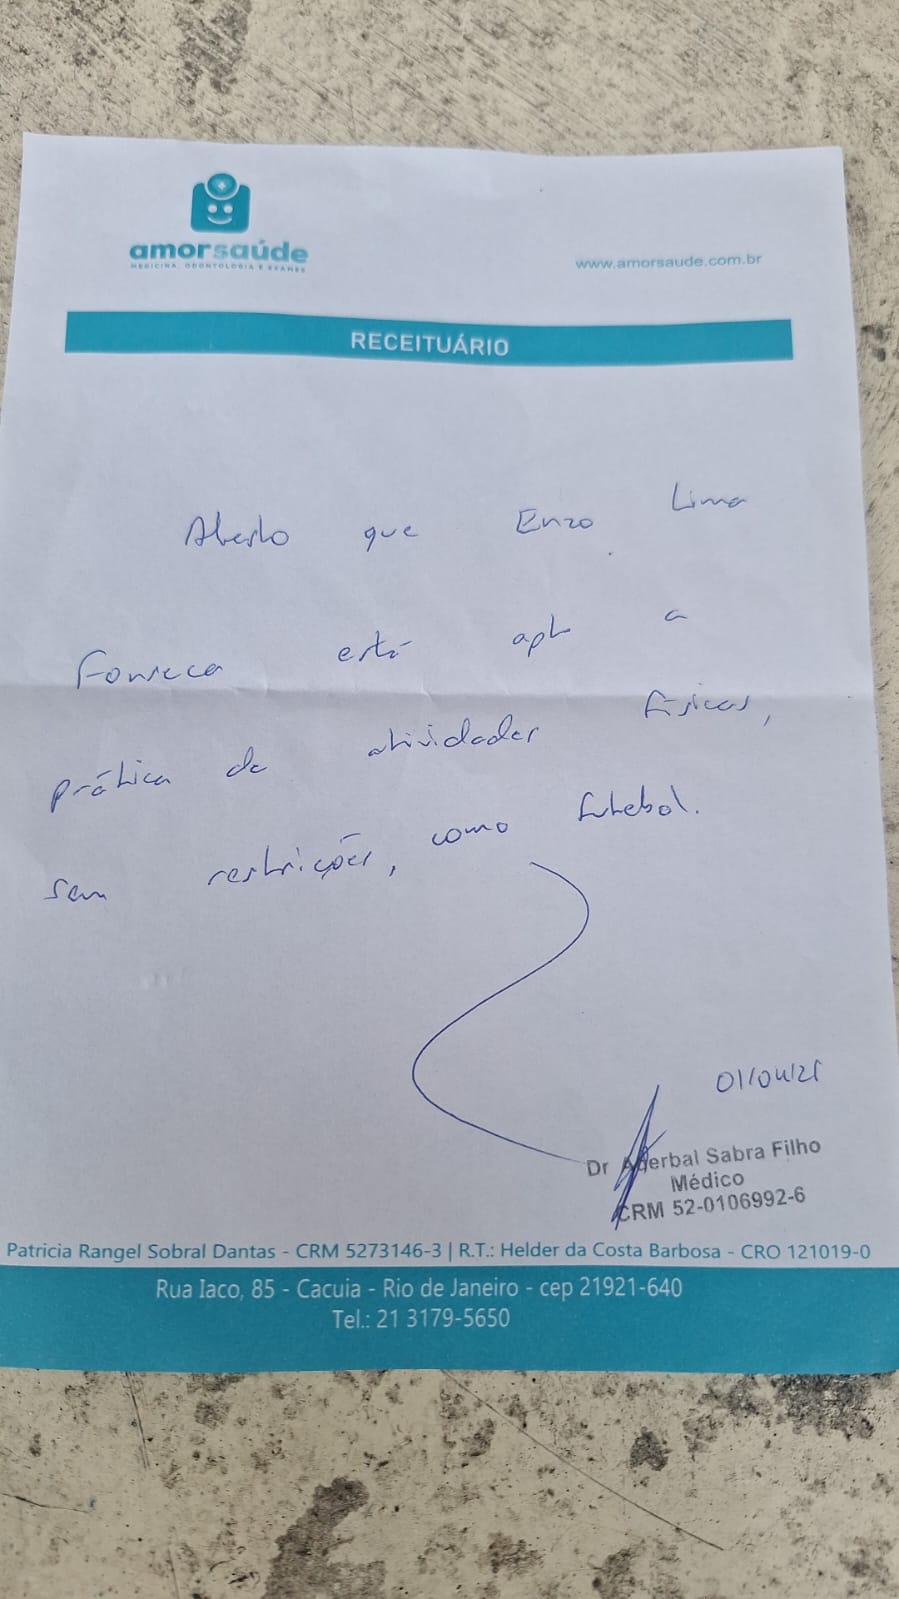 amorsaúde
MEDICINA, ODONTOLOGIA E EXAMES
www.amorsaude.com.br
RECEITUÁRIO
Atesto que Enzo Lima
Fonseca está apto a
prática de atividades físicas,
sem restrições, como futebol.
Dr Aderbal Sabra Filho
Médico
CRM 52-0106992-6
Patricia Rangel Sobral Dantas - CRM 5273146-3 | R.T.: Helder da Costa Barbosa - CRO 121019-0
Rua Iaco, 85 - Cacuia - Rio de Janeiro - cep 21921-640
Tel.: 21 3179-5650